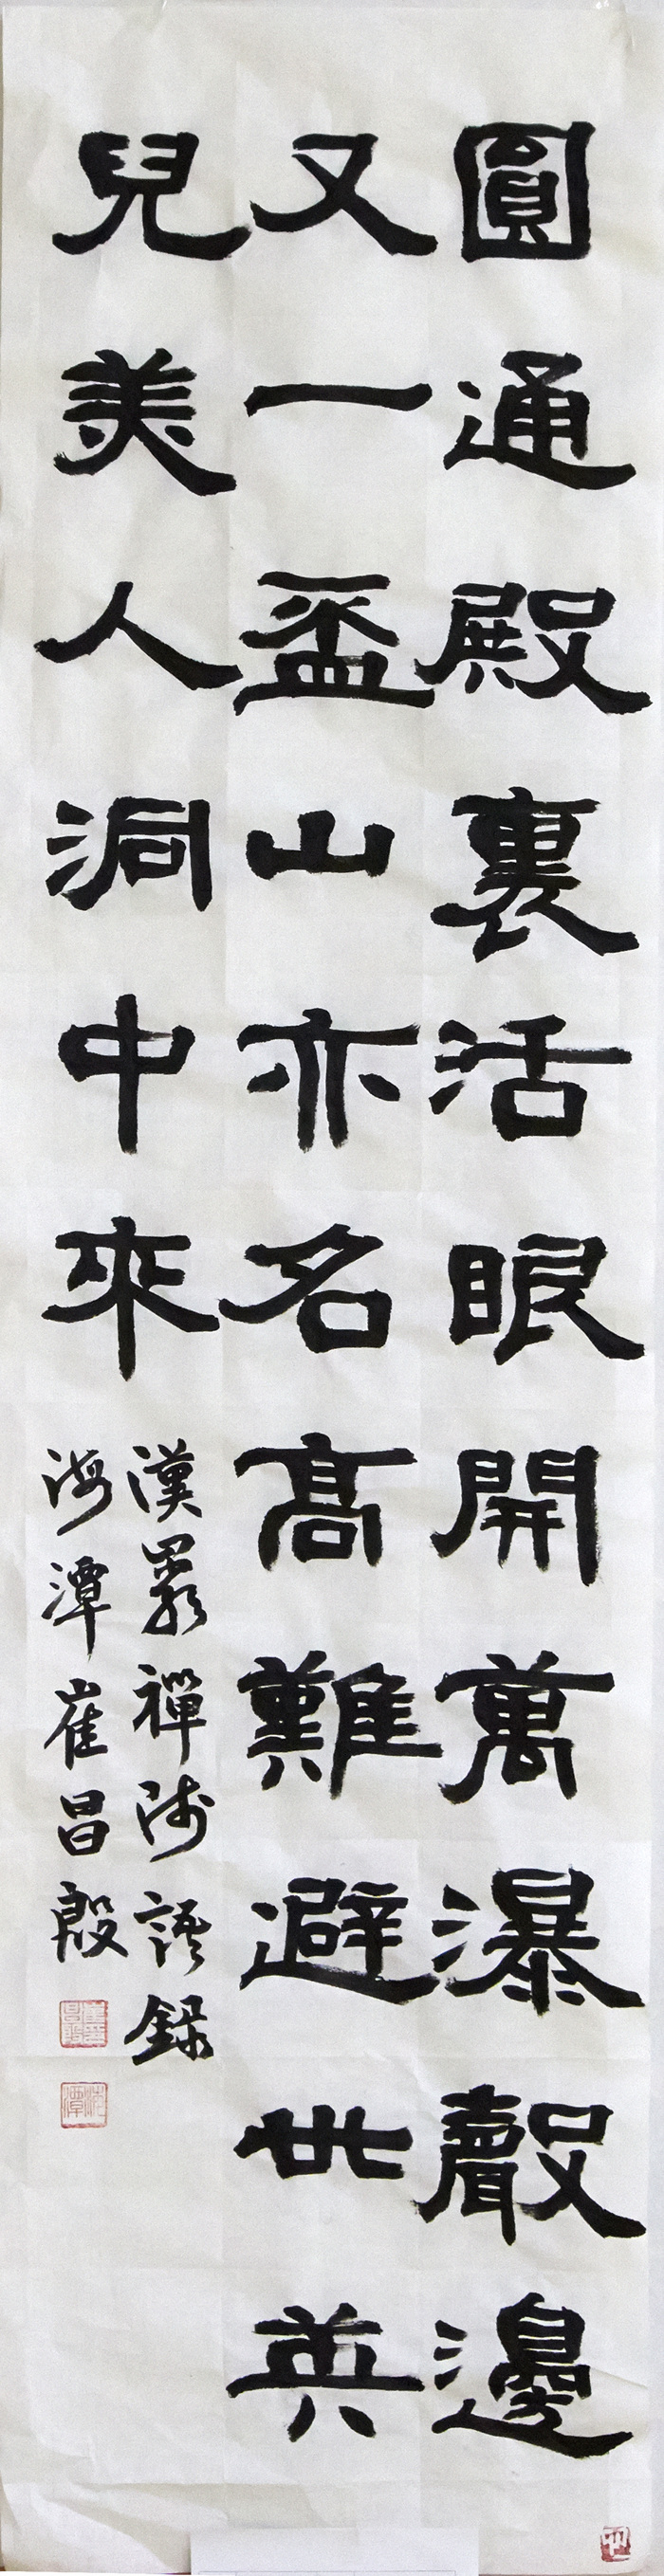 圓通殿裏活眼開萬瀑聲邊
又一盃山亦名高難避世英
兒美人洞中來
漢巖禪師語錄
海潭崔昌殷